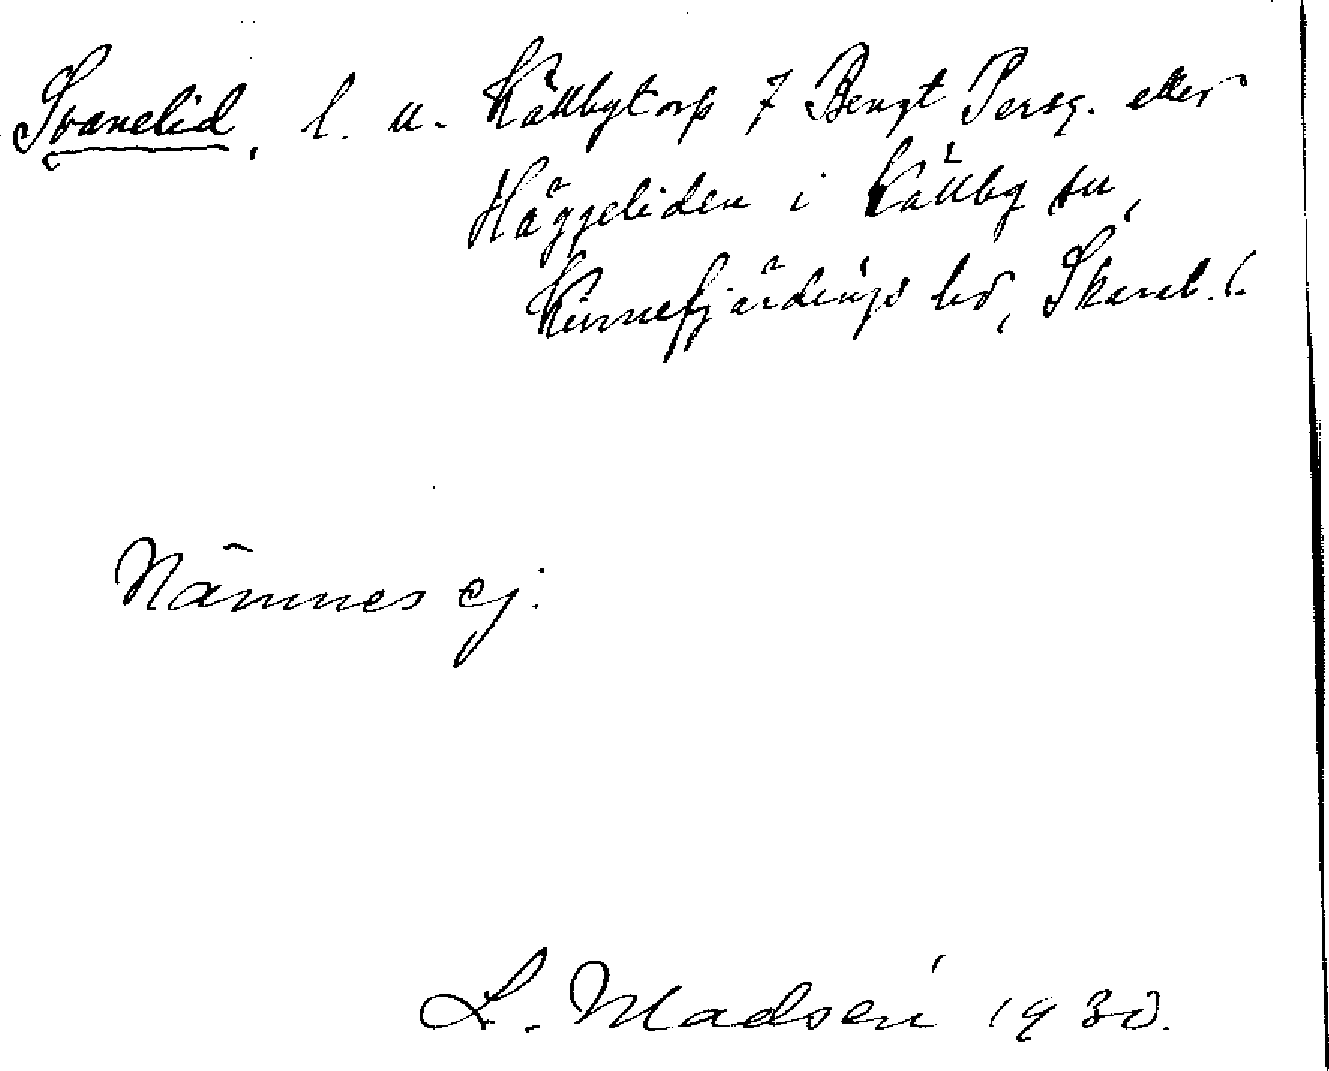 Svanelid, l. u. Källbytorp 7 Bengt Persg. eller
Häggeliden i Källby sn,
Kinnefjärdings hd, Skarab. l.
Nämnes ej.
L. Madsén 1930.